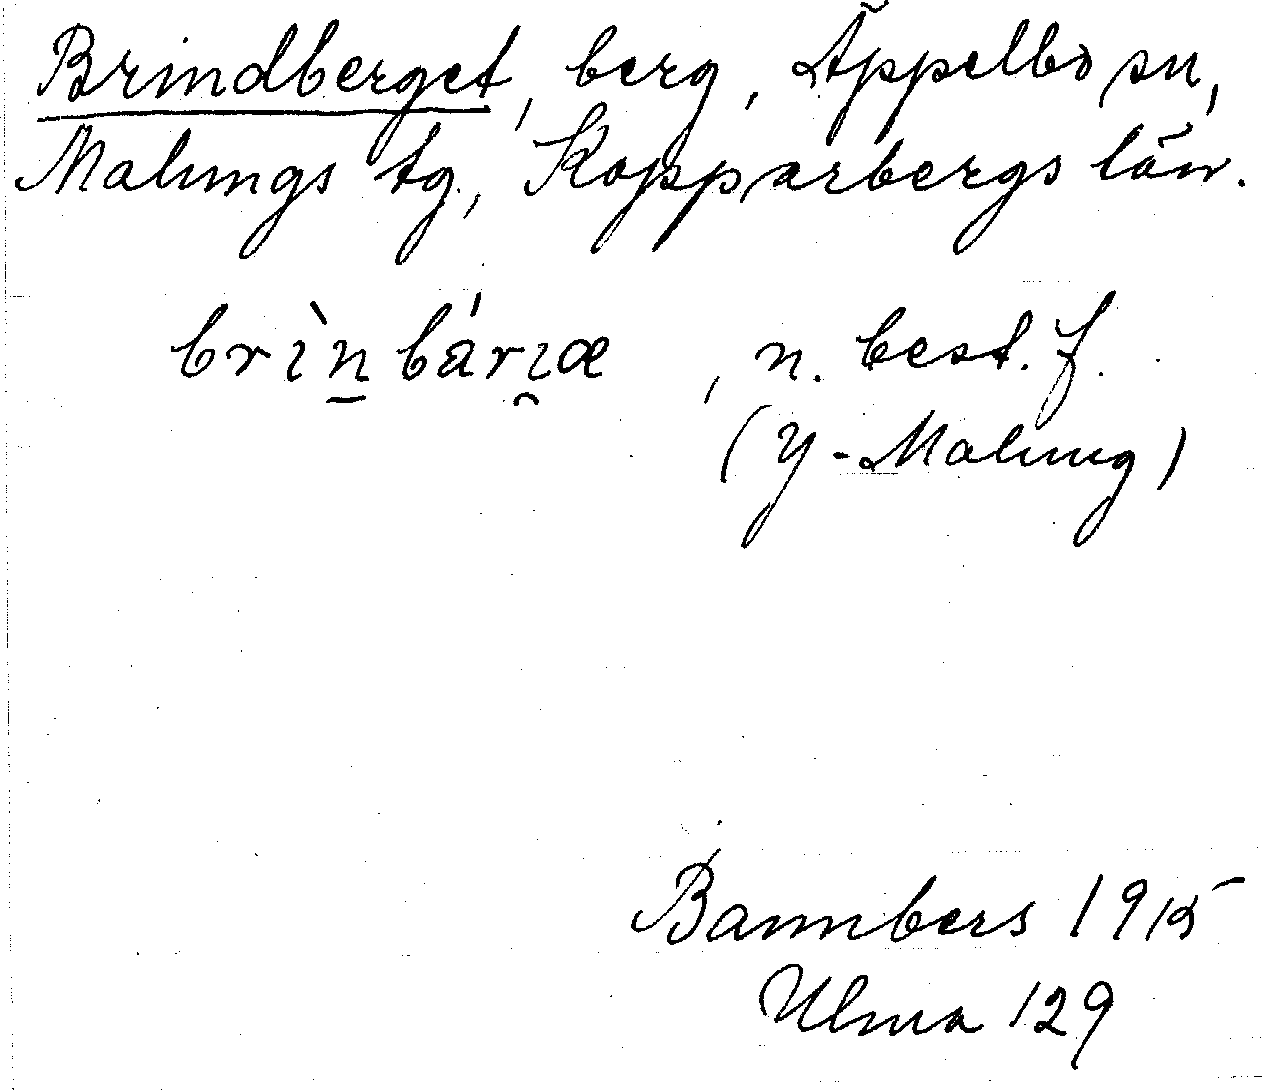 Brindberget, berg, Äppelbo sn,
Malungs tg., Kopparbergs län.
brı̀n̲bárı̯œ, n. best. f.
(Y-Malung)
Bannbers 1915
Ulma 129